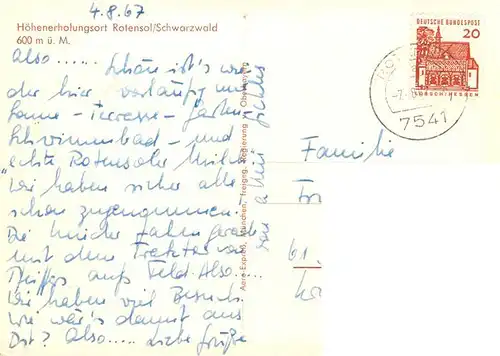 4.8.67
Höhenerholungsort Rotensol/Schwarzwald
600 m ü. M.
Also..... Schön ist's wie-
der hier vorläufig nur
Sonne - Terrasse - Garten-
Schwimmbad - und
echte Rotensoler Milch
Wir haben sicher alle
schon zugenommen.
Die Kinder fahren gerade
mit dem Trekter von
aufs Feld. Also......
Wir haben viel Besuch.
Wie wär's damit aus
Also..... Liebe Grüße
von
Aero-Express, München, Freigeg. Regierung v. Oberbayern
DEUTSCHE BUNDESPOST
20
LORSCH/HESSEN
7541
Familie
61.